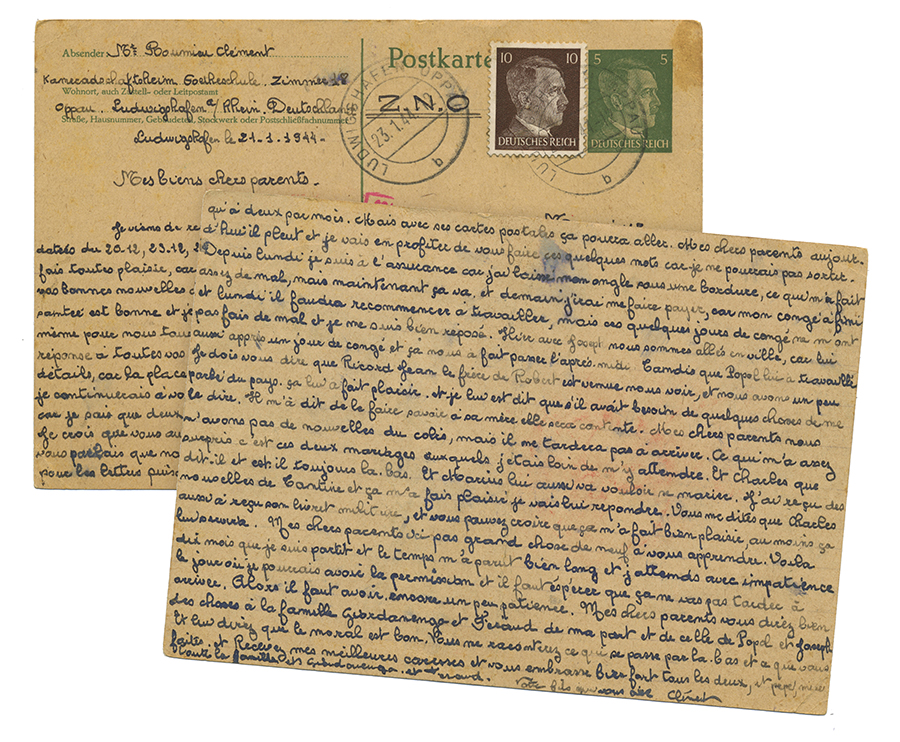 Absender Mr Roumieu Clément
Kameradschaftsheim Goetheschule. Zimmer 18
Wohnort, auch Zustell- oder Leitpostamt
Oppau. Ludwigshafen a/ Rhein. Deutschland
Straße, Hausnummer, Gebäudeteil, Stockwerk oder Postschließfachnummer
Postkarte
Z.N.O
LUDWIGSHAFEN-OPPAU
23.1.44
q
10 10
DEUTSCHES REICH
5 5
DEUTSCHES REICH
Ludwigshafen le 21-1-1944-
Mes biens chers parents.
Je viens de re
datés du 20.12, 23.12, 2
fais toutes plaisir, car
vos bonnes nouvelles
santée est bonne et je
même pour nous tou
réponse à toutes vos
détails, car la place
je continuerais à vo
car je sais que deux
Je crois que vous au
vous parlais que no
pour les lettres puis
qu'à deux par mois. Mais avec ses cartes postales ça pourra aller. Mes chers parents aujour-
d'hui il pleut et je vais en profiter de vous faire ces quelques mots car je ne pourrais pas sortir.
Depuis lundi je suis à l'assurance car j'ai laissé mon ongle sous une bordure, ce qu'm'a fait
assez de mal, mais maintenant ça va. et demain j'irai me faire payer, car mon congé à fini
et lundi il faudra recommencer à travailler, mais ces quelques jours de congé ne m'ont
pas fais de mal et je me suis bien reposé. Hière avec Joseph nous sommes allés en ville, car lui
aussi apprés un jour de congé et ça nous à fait passer l'après-midi. Tandis que Popol lui a travaillé.
Je dois vous dire que Ricord Jean le frère de Robert est venue nous voir, et nous avons un peu
parlé du pays. ça lui à fait plaisir. et je lui est dit que s'il avait besoin de quelques choses de me
le dire. Il m'à dit de le faire savoir à sa mère elle sera contente. Mes chers parents nous
n'avons pas de nouvelles du colis, mais il me tardera pas à arriver. Ce qui m'a assez
surpris c'est ces deux mariages auxquels j'étais loin de m'y attendre. Et Charles que
dit-il et est-il toujours là-bas. Et Marius lui aussi va vouloir se marier. J'ai reçu des
nouvelles de Tantine et ça m'a fais plaisir je vais lui repondre. Vous me dites que Charles
aussi à reçu son livret militaire, et vous pouvez croire que ça m'a fait bien plaisir, au moins ça
lui servira. Mes chers parents ici pas grand chose de neuf à vous apprendre. Voila
dix mois que je suis partit et le temps m'a parut bien long et j'attends avec impatience
le jour où je pourrais avoir la permission et il faut éspérer que ça ne vas pas tarder à
arriver. Alors il faut avoir encore un peu patience. Mes chers parents vous direz bien
des choses à la famille Giordanengo et Féraud de ma part et de celle de Popol et Joseph
Et lui direz que le moral est bon. Vous me raconterez ce qui se passe par là-bas et a que vous
faites, et Recevez mes meilleures caresses et vous embrasse bien fort tous les deux, et pépé, mémé
toute la famille et Giordanengo et Feraud.
Votre fils que vous aime Clément